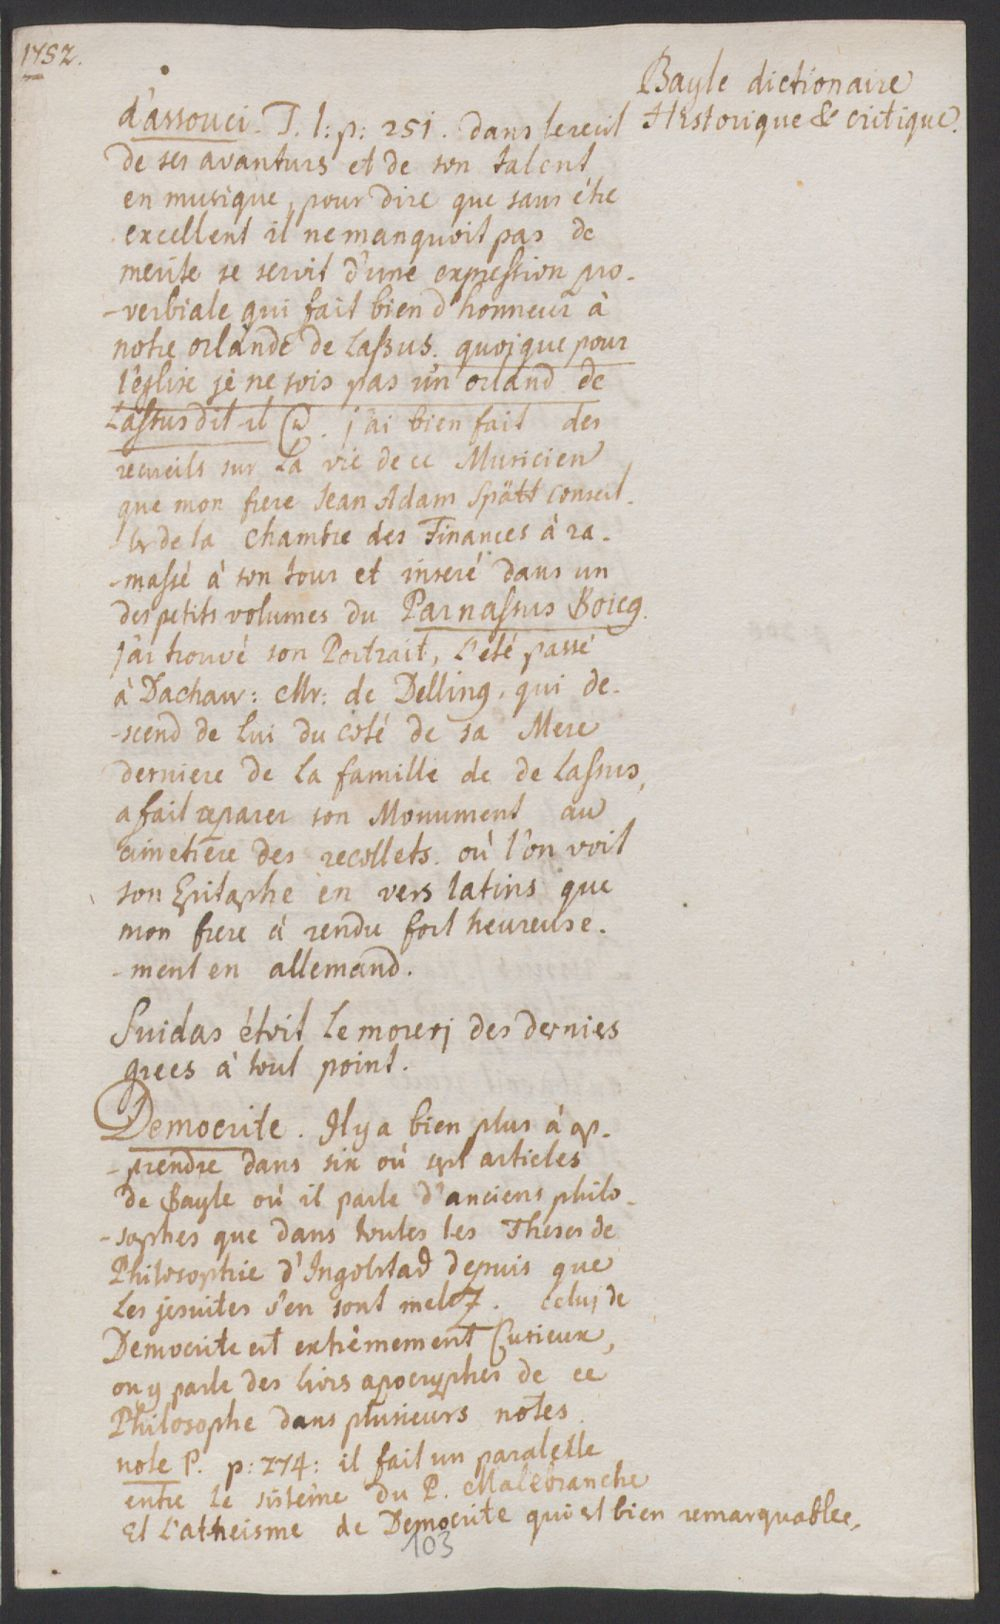 1752.
Bayle dictionaire
Historique & critique.
d'assouci. T. I: p: 251. dans lereciil
de ses avanturs et de son talent
en musique, pour dire que sans étre
excellent il ne manquoit pas de
merite se servit d'une expression pro-
-verbiale qui fait bien d'honneur à
notre orlande de Lassus. quoique pour
l'église je ne sois pas un orland de
Lassus dit-il. j'ai bien fait des
recueils sur La vie de ce Musicien,
que mon frere Jean Adam Spätt conseil-
-ler de la chambre des Finances à ra-
-massé à son tour et inseré dans un
des petits volumes du Parnassus Boicg.
j'ai trouvé son Portrait, L'eté passé
à Dachaw: Mr: de Delling, qui de-
-scend de Lui du coté de sa Mere
derniere de la famille de de Lassus,
a fait reparer son Monument au
cimetiere des recollets. où l'on voit
son Epitaphe en vers latins que
mon frere à rendu fort heureuse-
-ment en allemand.
Suidas étoit Le morerj des derniers
grecs à tout point.
Democrite. Il y a bien plus à ap-
-prendre dans six où sept articles
de Bayle où il parle d'anciens philo-
-sophes que dans toutes les Theses de
Philosophie d'Ingolstad depuis que
Les jesuites s'en sont melez. celuj de
Democrite est extrêmement Curieux,
on y parle des livrs apocryphes de ce
Philosophe dans plusieurs notes.
note P. p: 274: il fait un paralelle
entre Le sistéme du P. Malebranche
Et L'atheisme de Democrite qui est bien remarquable.
103